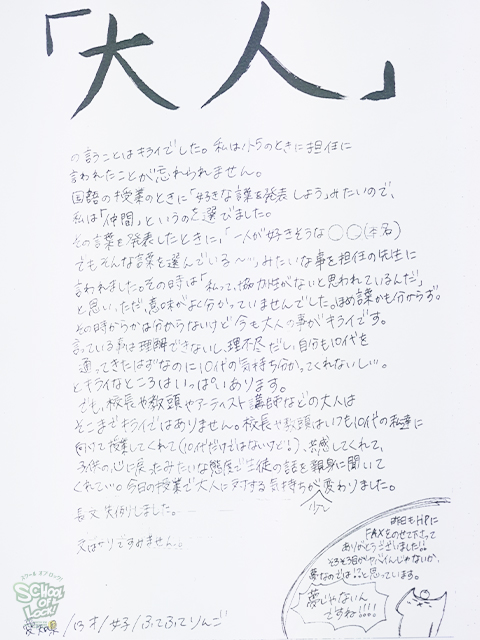 「大人」
の言うことはキライでした。私は小5のときに担任に
言われたことが忘れられません。
国語の授業のときに「好きな言葉を発表しよう」みたいので、
私は「仲間」というのを選びました。
その言葉を発表したときに、「一人が好きそうな○○(本名)
でもそんな言葉を選んでいる〜〜」みたいな事を担任の先生に
言われました。その時は「私って、協力性がないと思われているんだ」
と思い、ただ、意味がよく分かっていませんでした。ほめ言葉かも分からず。
その時からかは分からないけど今も大人の事がキライです。
言っている事は理解できないし、理不尽だし、自分も10代を
通ってきたはずなのに10代の気持ち分かってくれないし…。
とキライなところはいっぱいあります。
でも、校長や教頭やアーティスト講師などの大人は
そこまでキライではありません。校長や教頭はいつも10代の私達に
向けて授業してくれて(10代だけではないけど!)、共感してくれて、
子供の心に戻ったみたいな態度で生徒の話を親身に聞いて
くれて…。今日の授業で大人に対する気持ちが少し変わりました。
長文失例しました。
文はウリですみません。
昨日もHPに
FAXをのせて下さって
ありがとうございました!!
そろそろ自分ヤバイんじゃないか、
夢なのでは!?と思っています。
夢じゃないん
ですね!!!!
SCHOOL OF LOCK!
愛知県/13才/女子/ふてふてりんご